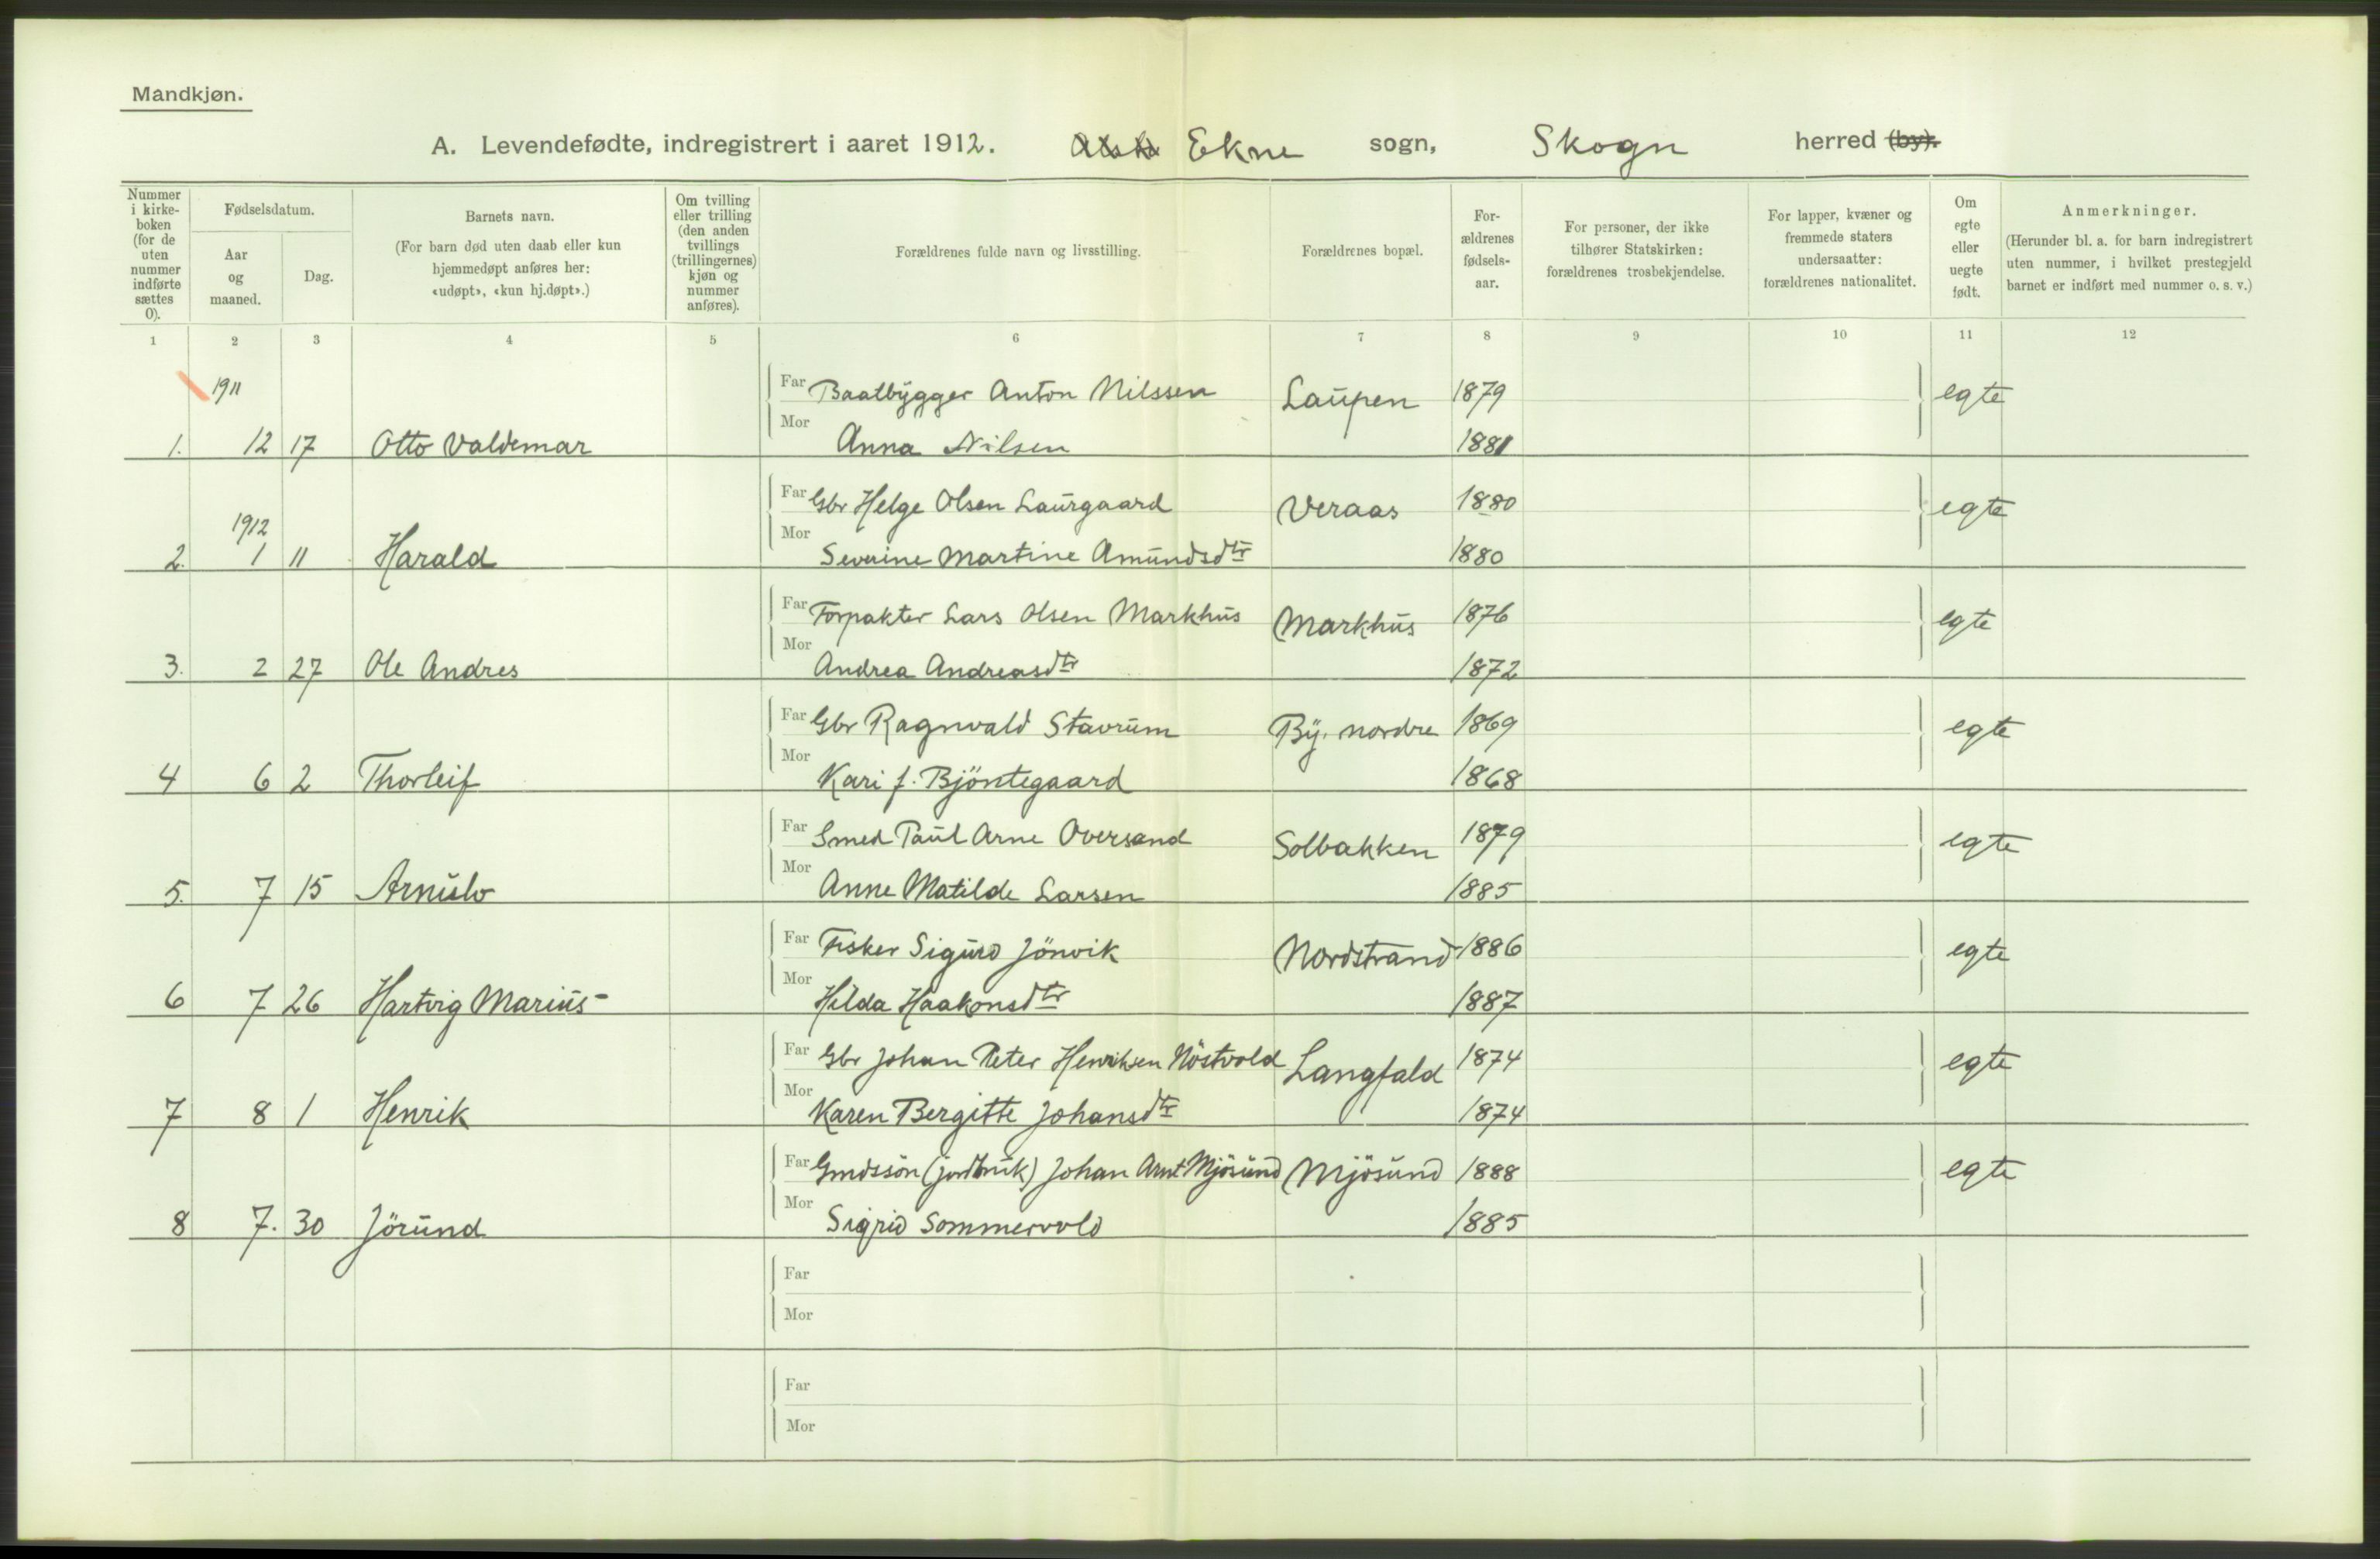 Mandkjøn.
A. Levendefødte, indregistrert i aaret 1912. Ekne sogn, Skogn herred (by).
Nummer i kirke-boken (for de uten nummer indførte sættes 0).
Fødselsdatum.
Aar og maaned.
Dag.
Barnets navn.
(For barn død uten daab eller kun hjemmedøpt anføres her: «udøpt», «kun hj.døpt».)
Om tvilling eller trilling (den anden tvillings (trillingernes) kjøn og nummer anføres).
Forældrenes fulde navn og livsstilling.
Forældrenes bopæl.
For-ældrenes fødsels-aar.
For personer, der ikke tilhører Statskirken: forældrenes trosbekjendelse.
For lapper, kvæner og fremmede staters undersaatter: forældrenes nationalitet.
Om egte eller uegte født.
Anmerkninger.
(Herunder bl. a. for barn indregistrert uten nummer, i hvilket prestegjeld barnet er indført med nummer o. s. v.)
1 2 3 4 5 6 7 8 9 10 11 12
1911 Far Baatbygger Anton Nilssen Laupen 1879 egte
1. 12 17 Otto Valdemar Mor Anna Nilsen 1881
1912 Far Gbr Helge Olsen Laurgaard Veraas 1880 egte
2. 1 11 Harald Mor Severine Martine Amundsdtr 1880
Far Forpakter Lars Olsen Markhus Markhus 1876 egte
3. 2 27 Ole Andres Mor Andrea Andreasdtr 1872
Far Gbr Ragnvald Stavrum By. nordre 1869 egte
4 6 2 Thorleif Mor Kari f. Bjöntegaard 1868
Far Smed Paul Arne Oversand Solbakken 1879 egte
5. 7 15 Arnulv Mor Anne Matilde Larsen 1885
Far Fisker Sigurd Jönvik Nordstrand 1886 egte
6 7 26 Hartvig Marius- Mor Hilda Haakonsdtr 1887
Far Gbr Johan Peter Henriksen Nöstvold Langfald 1874 egte
7 8 1 Henrik Mor Karen Bergitte Johansdtr 1874
Far Gmdssön (jordbruk) Johan Arnt Mjösund Mjösund 1888 egte
8 7. 30 Jörund Mor Sigrid Sommervold 1885
Far
Mor
Far
Mor